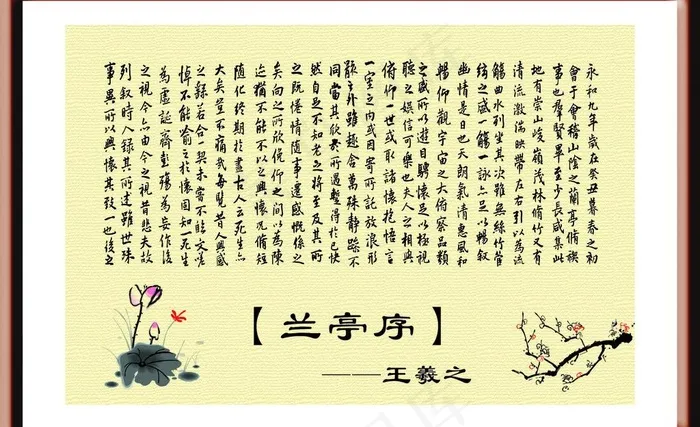 永和九年歲在癸丑暮春之初
會于會稽山陰之蘭亭脩稧
事也羣賢畢至少長咸集此
地有崇山峻嶺茂林脩竹又有
清流激湍映帶左右引以為流
觴曲水列坐其次雖無絲竹管
絃之盛一觴一詠亦足以暢叙
幽情是日也天朗氣清惠風和
暢仰觀宇宙之大俯察品類
之盛所以遊目騁懷足以極視
聽之娛信可樂也夫人之相與
俯仰一世或取諸懷抱悟言
一室之內或因寄所託放浪形
骸之外雖趣舍萬殊靜躁不
同當其欣於所遇暫得於己快
然自足不知老之將至及其所
之既惓情隨事遷感慨係之
矣向之所欣俛仰之間以為陳
迹猶不能不以之興懷況脩短
隨化終期於盡古人云死生亦
大矣豈不痛哉每攬昔人興感
之若合一契未嘗不文嗟
悼不能喻之於懷固知一死生
為虛誕齊彭殤為妄作後
之視今亦由今之視昔悲夫故
列叙時人錄其所述雖世殊
事異所以興懷其致一也後之
【兰亭序】
——王羲之